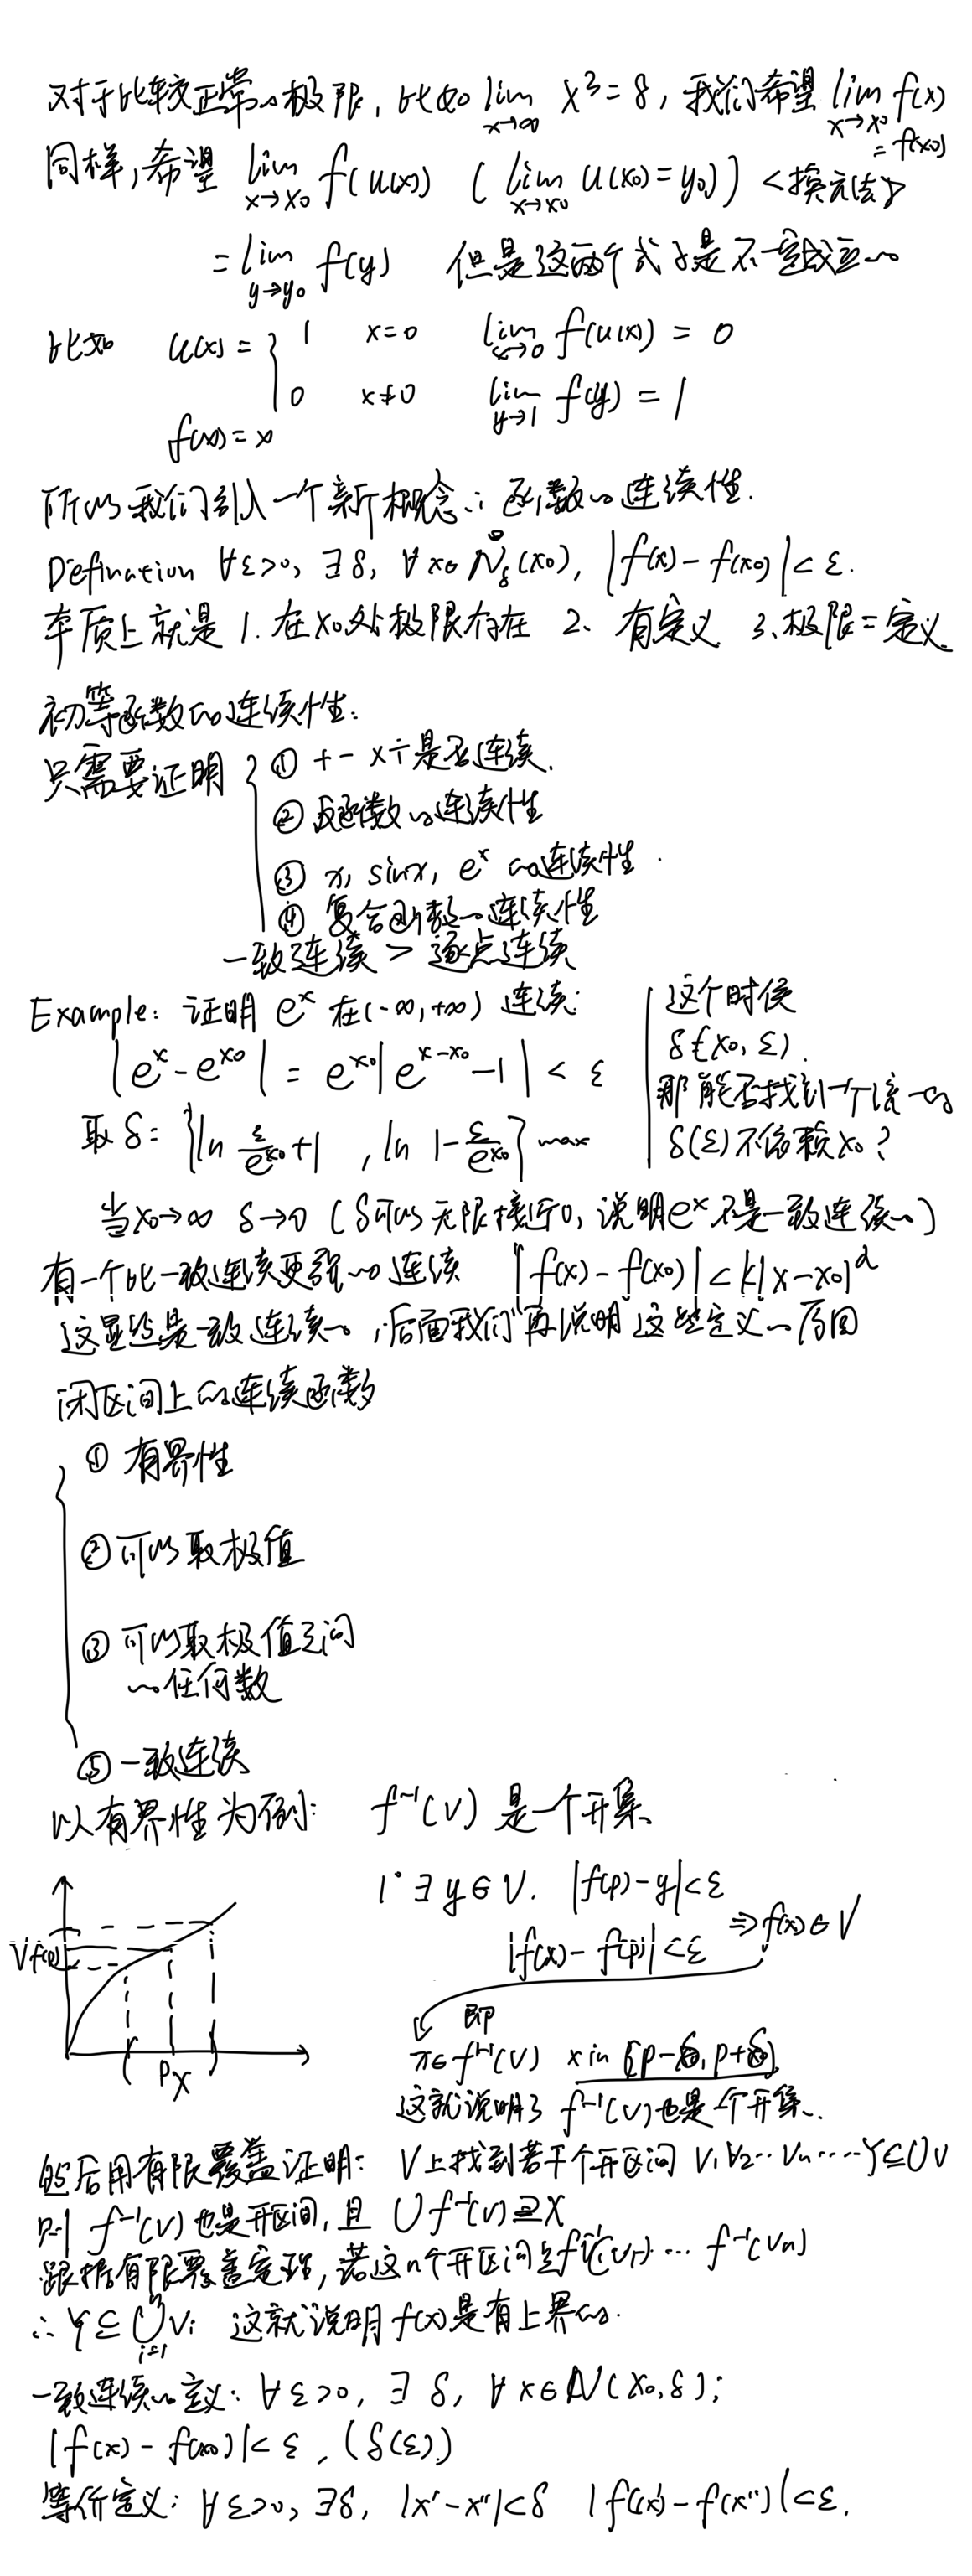 对于比较正常的极限, 比如 lim x→∞ x³ = 8, 我们希望 lim x→x₀ f(x) = f(x₀)
同样, 希望 lim x→x₀ f(u(x)) ( lim x→x₀ u(x₀) = y₀) ) <换元法>
= lim y→y₀ f(y) 但是这两个式子是不一定成立的
比如 u(x) = { 1 x=0 lim x→0 f(u(x)) = 0
0 x≠0 lim y→1 f(y) = 1
f(x) = x
所以我们引入一个新概念: 函数的连续性.
Defination ∀ε>0, ∃δ, ∀x∈N̊δ(x₀), |f(x) - f(x₀)| < ε.
本质上就是 1. 在x₀处极限存在 2、有定义 3、极限=定义
初等函数的连续性:
只需要证明 { ① + - × ÷ 是否连续.
② 反函数的连续性
③ x, sinx, eˣ 的连续性.
④ 复合函数的连续性
一致连续 > 逐点连续
Example: 证明 eˣ 在(-∞,+∞) 连续:
|eˣ - eˣ⁰| = eˣ⁰|eˣ⁻ˣ⁰ - 1| < ε
取 δ = {ln ε/eˣ⁰ + 1 , ln 1 - ε/eˣ⁰} max
这个时候
δ(x₀, ε).
那能否找到一个统一的
δ(ε)不依赖x₀?
当x₀→∞ δ→0 (δ可以无限接近0, 说明eˣ不是一致连续的)
有一个比一致连续更强的连续 |f(x) - f(x₀)| < k|x - x₀|^α
这显然是一致连续的, 后面我们再说明这些定义的原因
闭区间上的连续函数
① 有界性
② 可以取极值
③ 可以取极值之间
的任何数
⑤ 一致连续
以有界性为例: f⁻¹(V) 是一个开集
1° ∃y∈V. |f(p) - y| < ε
|f(x) - f(p)| < ε ⇒ f(x)∈V
V f(p)
p x
即
x∈f⁻¹(V) x in [p-δ, p+δ]
这就说明了 f⁻¹(V)也是一个开集.
然后用有限覆盖证明: V上找到若干个开区间 V₁V₂…Vₙ…… Y⊆∪V
则 f⁻¹(V)也是开区间, 且 ∪f⁻¹(V)⊇X
跟据有限覆盖定理, 若这n个开区间是f⁻¹(V₁)… f⁻¹(Vₙ)
∴ Y⊆∪ⁿᵢ₌₁Vᵢ 这就说明f(x)是有上界的.
一致连续的定义: ∀ε>0, ∃δ, ∀x∈N(x₀,δ);
|f(x) - f(x₀)| < ε, (δ(ε))
等价定义: ∀ε>0, ∃δ, |x' - x''| < δ |f(x') - f(x'')| < ε.